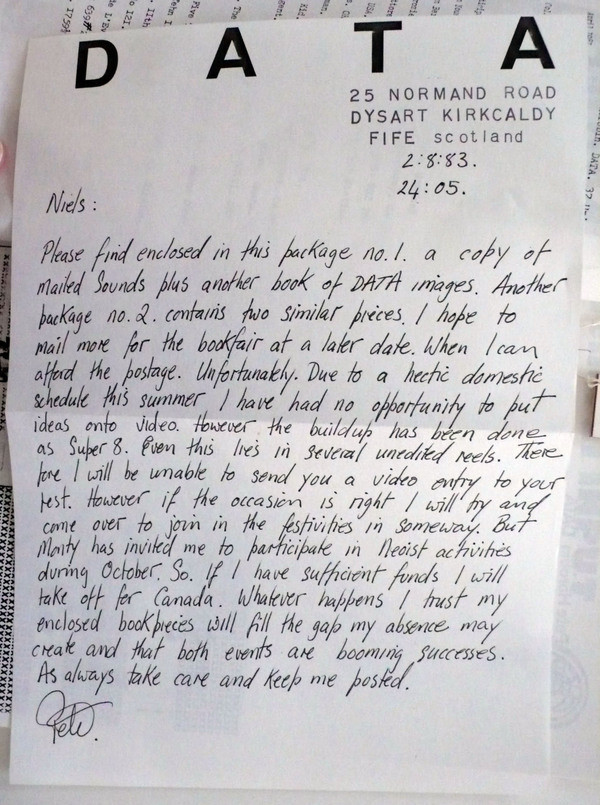 D A T A
25 NORMAND ROAD
DYSART KIRKCALDY
FIFE scotland
2:8:83.
24:05.
Niels:
Please find enclosed in this package no.1. a copy of
Mailed Sounds plus another book of DATA images. Another
package no.2. contains two similar pieces. I hope to
mail more for the bookfair at a later date. When I can
afford the postage. Unfortunately. Due to a hectic domestic
schedule this summer I have had no opportunity to put
ideas onto video. However the buildup has been done
as Super 8. Even this lies in several unedited reels. There
fore I will be unable to send you a video entry to your
fest. However if the occasion is right I will try and
come over to join in the festivities in someway. But
Monty has invited me to participate in Neoist activities
during October. So. If I have sufficient funds I will
take off for Canada. Whatever happens I trust my
enclosed bookpieces will fill the gap my absence may
create and that both events are booming successes.
As always take care and keep me posted.
Pete.